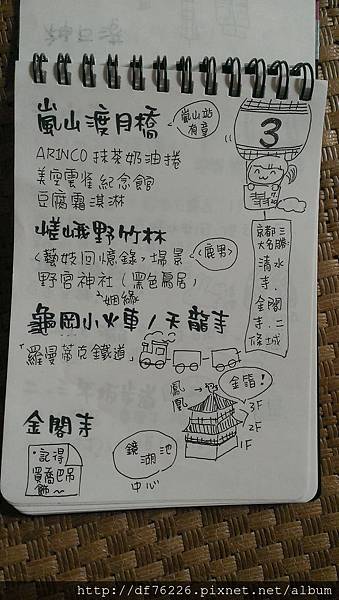 嵐山渡月橋
嵐山站
有章
3
ARINCO 抹茶奶油捲
美空雲雀紀念館
豆腐霜淇淋
嵯峨野竹林
<藝妓回憶錄>場景
<鹿男>
野宮神社(黑色鳥居)
姻緣
京都三大名勝:
清水寺.金閣寺.二條城
龜岡小火車/天龍寺
「羅曼蒂克鐵道」
金閣寺
鳳凰
金箔!
3F
2F
1F
鏡湖池
中心
·記得
買喬巴吊
飾~
http://df76226.pixnet.net/album